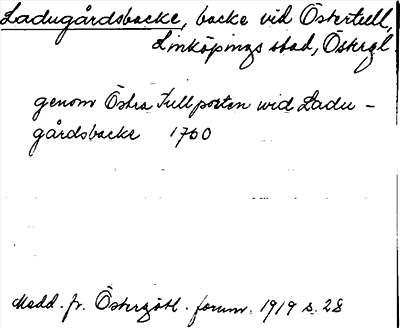 Ladugårdsbacke, backe vid Östertull,
Linköpings stad, Östergl.
genom Östra Tullporten wid Ladu-
gårdsbacke 1700
Medd. fr. Östergötl. fornm. 1919 s. 28